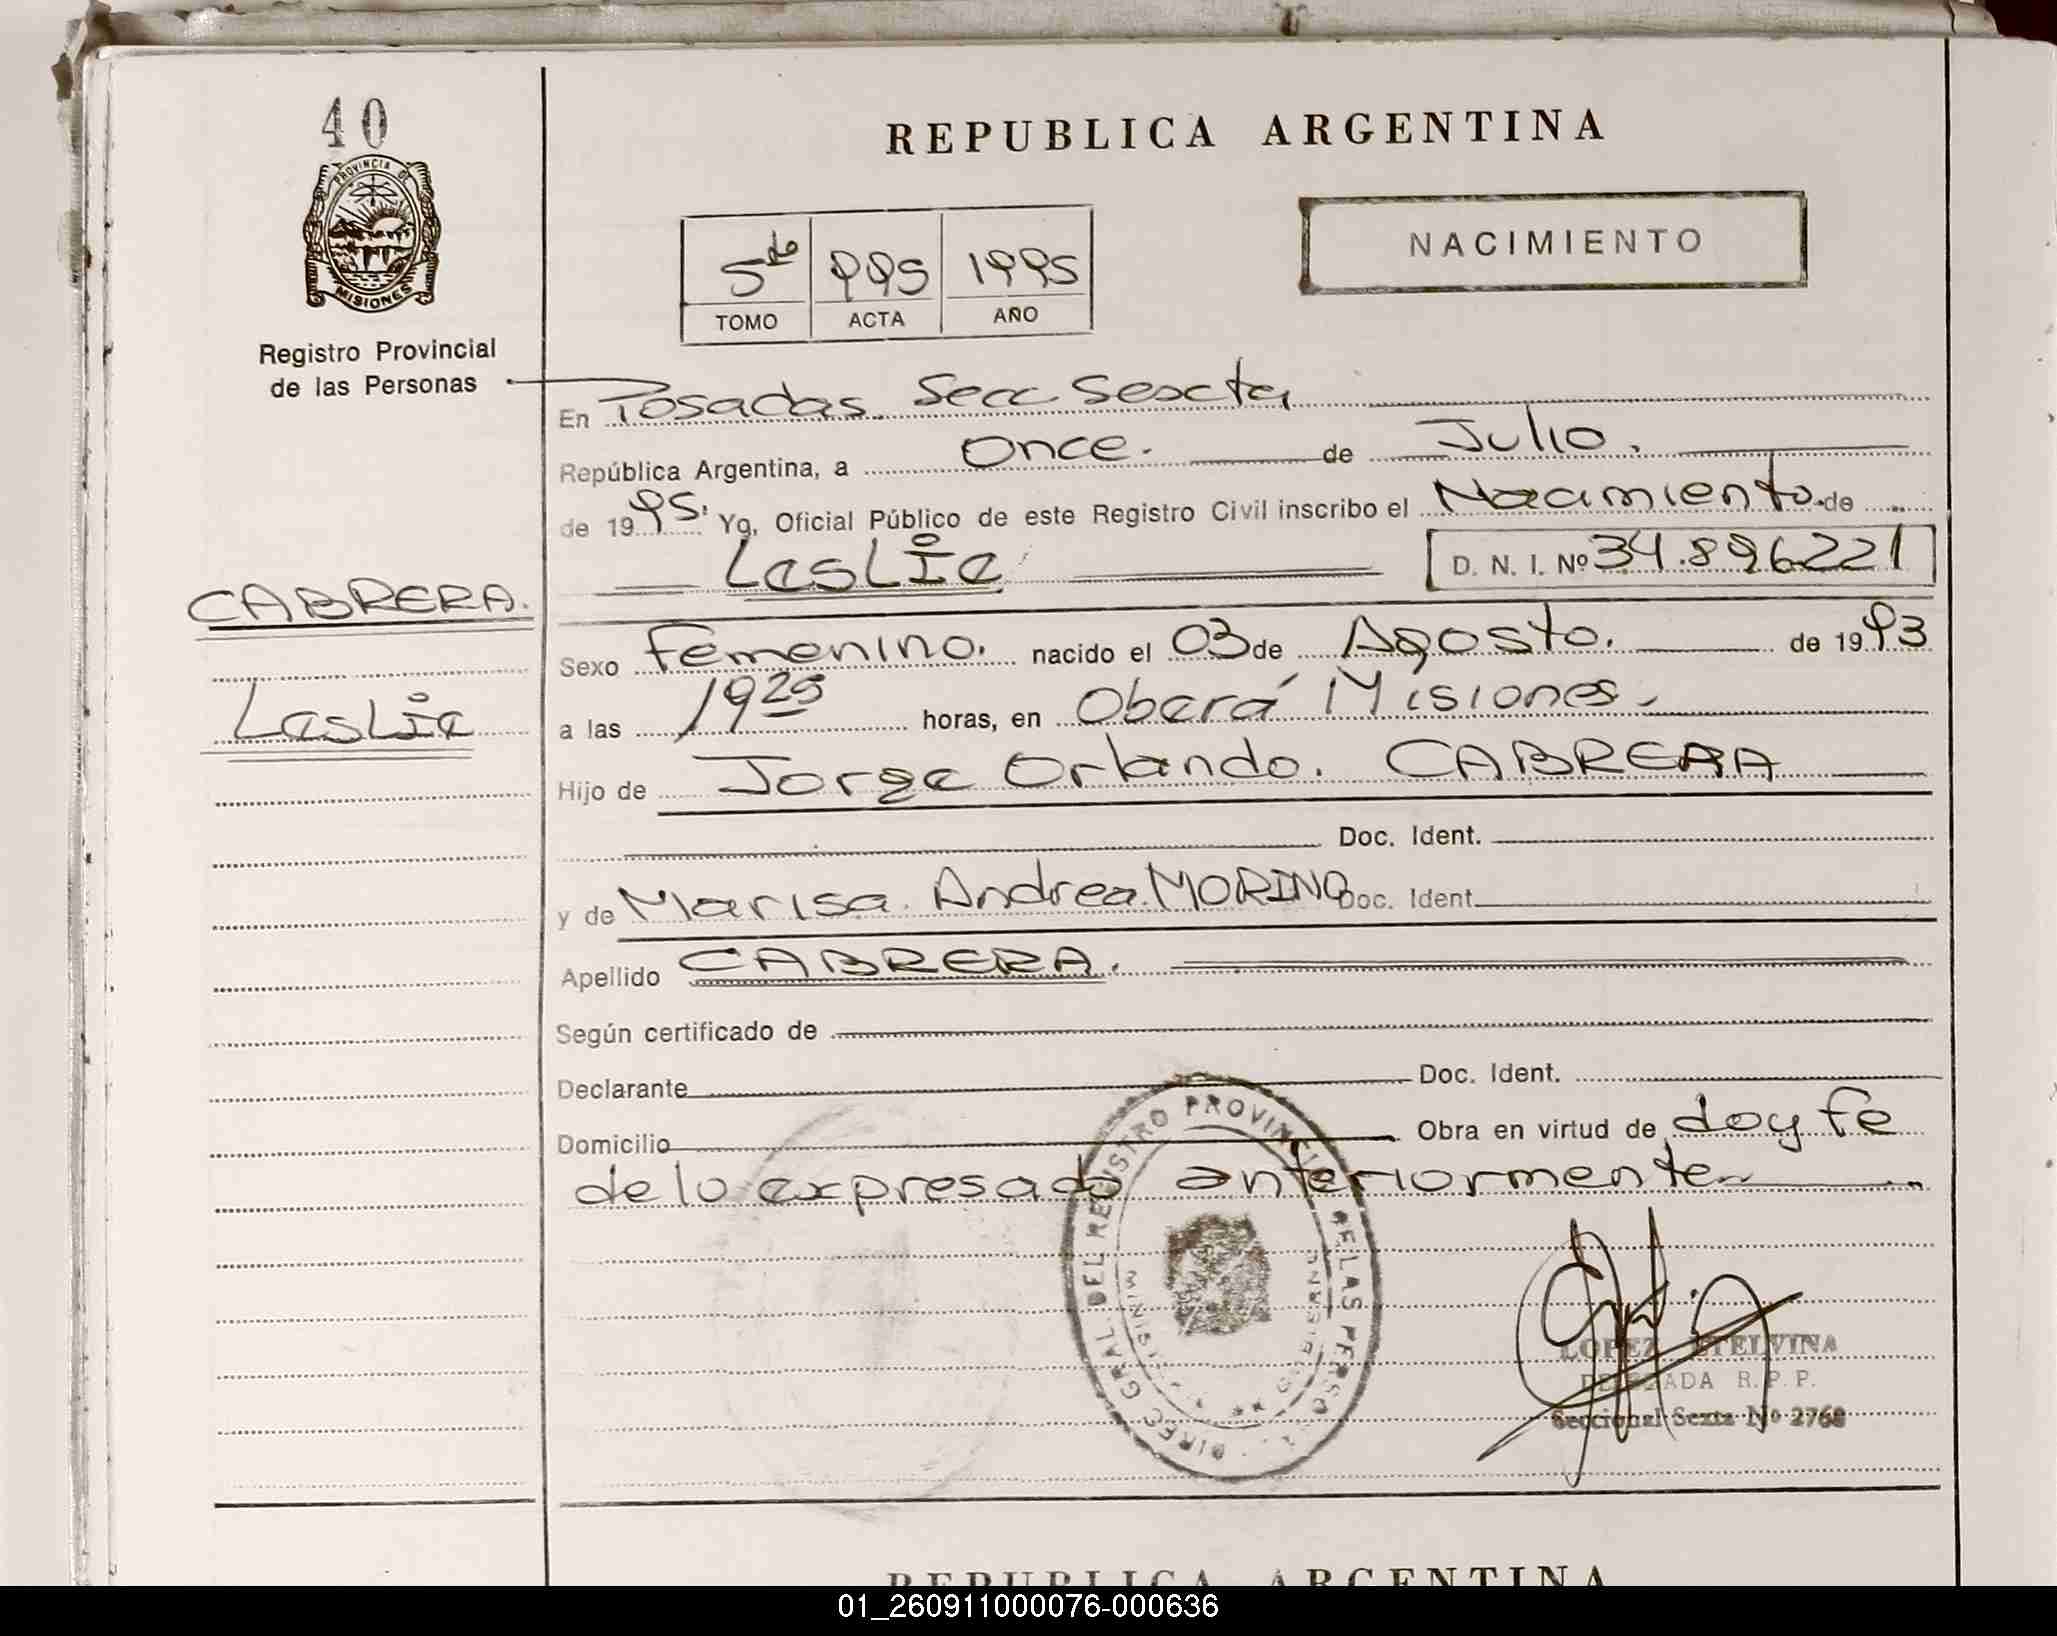 40
PROVINCIA DE
MISIONES
Registro Provincial
de las Personas
REPUBLICA ARGENTINA
NACIMIENTO
5to 995 1995
TOMO ACTA AÑO
En Posadas. Secc Sexta
República Argentina, a Once. de Julio.
de 1995. Yo, Oficial Público de este Registro Civil inscribo el Nacimiento de
LesLie D. N. I. Nº 34.896221
CABRERA.
LesLie
Sexo femenino. nacido el 03 de Agosto. de 1993
a las 1925 horas, en Oberá Misiones.
Hijo de Jorge Orlando. CABRERA
Doc. Ident.
y de Marisa. Andrea. MORINO Doc. Ident.
Apellido CABRERA.
Según certificado de
Declarante Doc. Ident.
Domicilio Obra en virtud de doy fe
de lo expresado anteriormente
DIREC. GRAL. DEL REGISTRO PROVINCIAL DE LAS PERSONAS
LOPEZ ETELVINA
DELEGADA R. P. P.
Seccional Sexta Nº 2768
REPUBLICA ARGENTINA
01_260911000076-000636